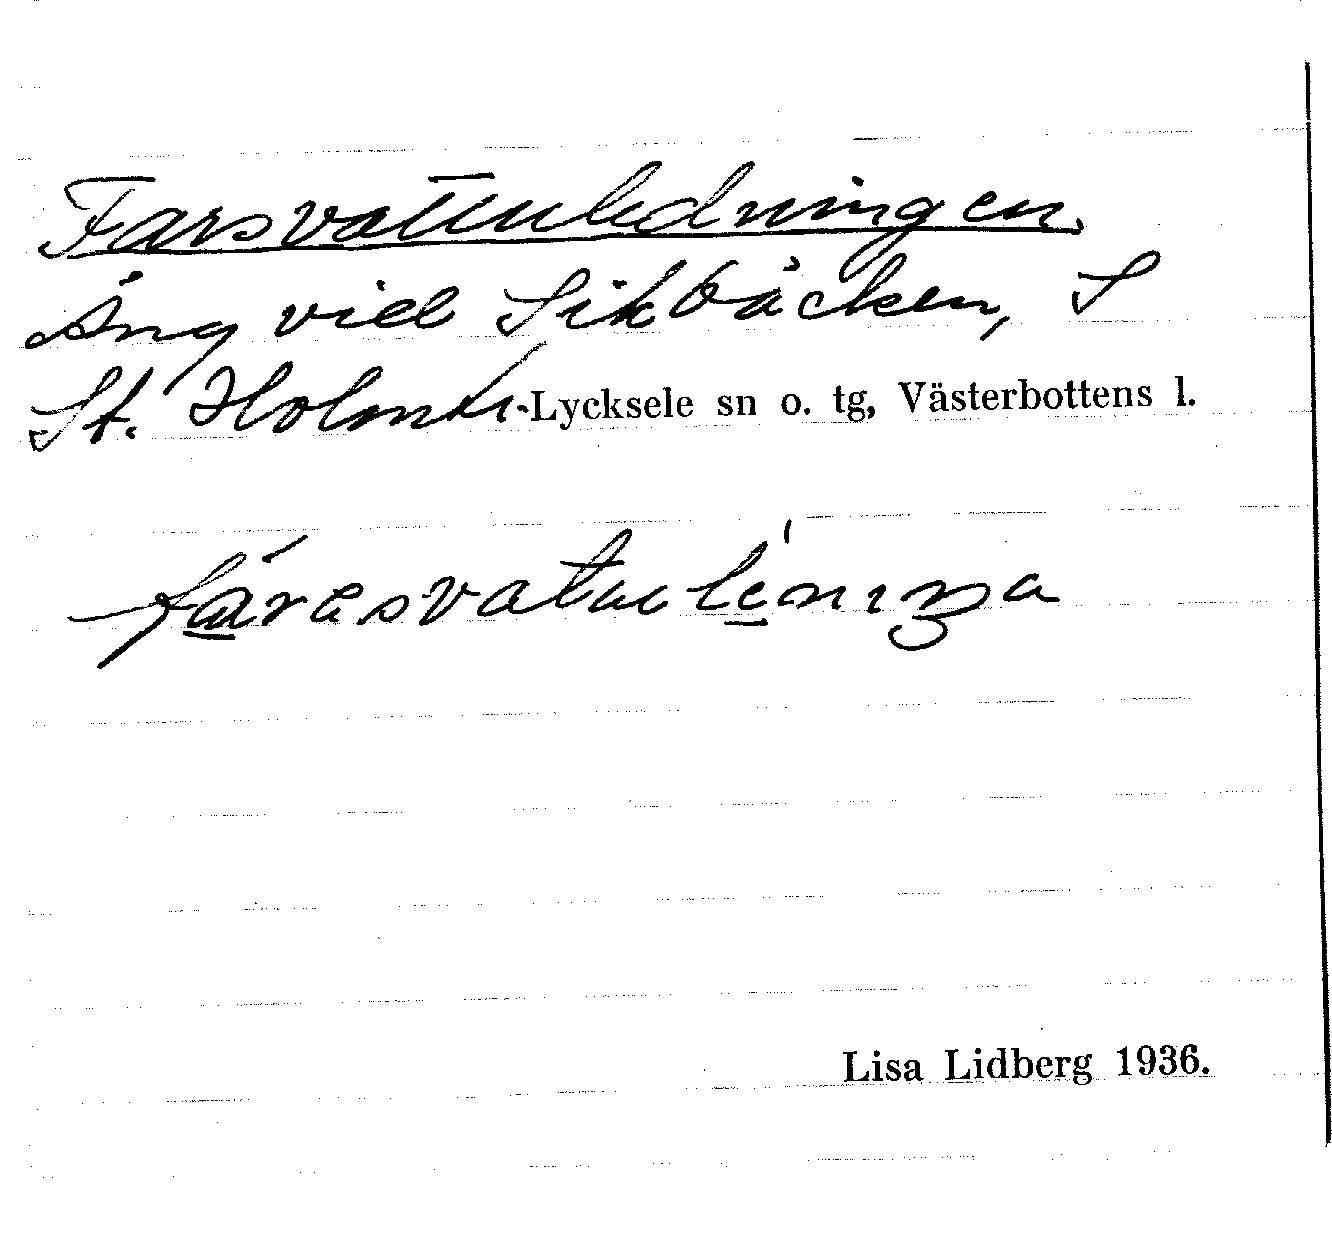 Farsvattuledningen.
Äng vid Sikbäcken, S
St. Holmtr. Lycksele sn o. tg, Västerbottens l.
Lisa Lidberg 1936.